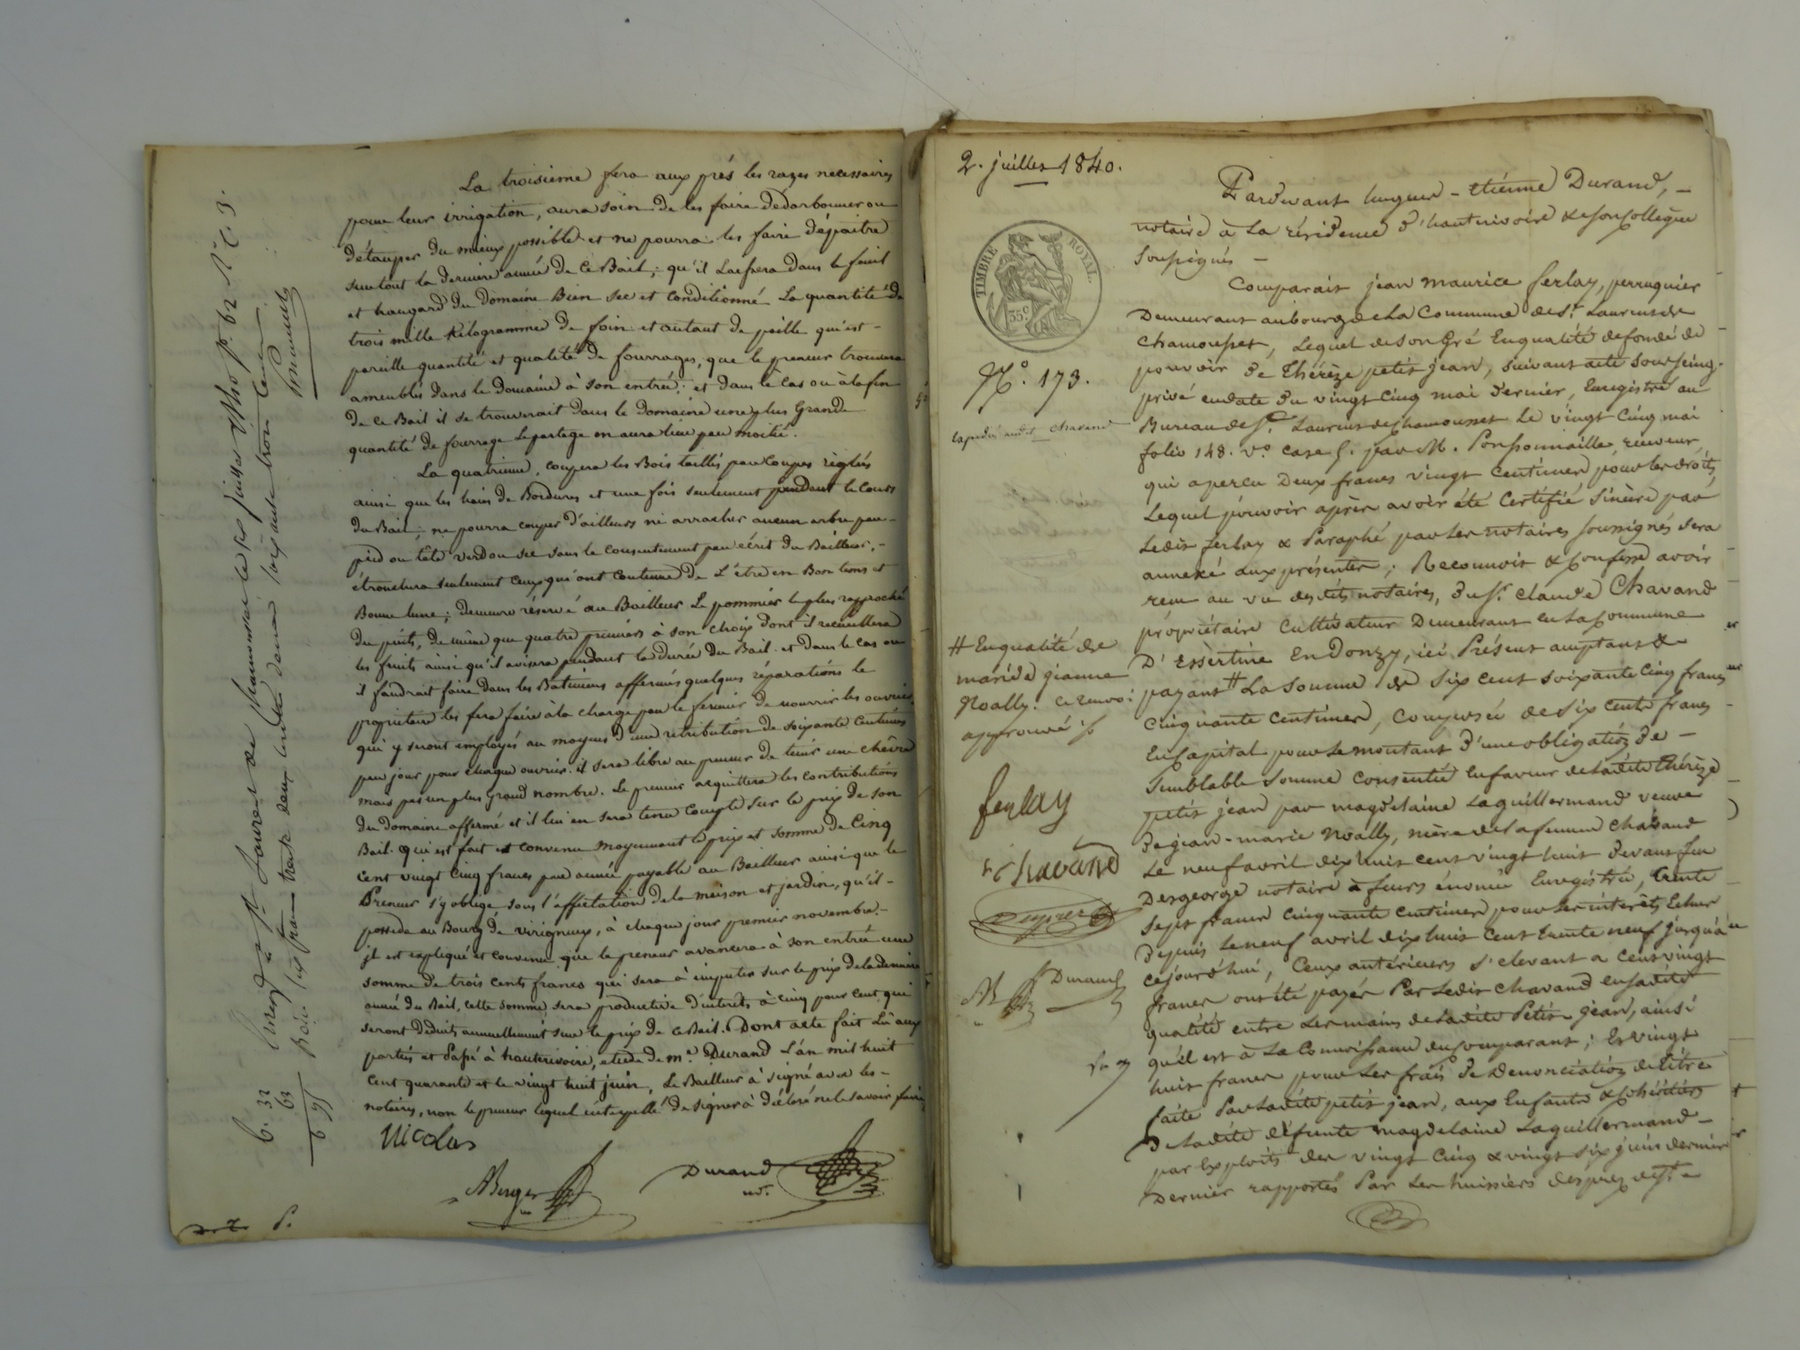 La troisieme fera aux prés les razes necessaires
pour leur irrigation, aura soin de les faire dedarbonner ou
détauper du mieux possible et ne pourra les faire dépaitre
surtout la derniere année de ce Bail; qu'il laissera dans le fenil
et hangard du domaine Bien sec et conditionné La quantité de
trois mille Kilogrammes de foin et autant de paille qu'est-
pareille quantité et qualité de fourrages, que le preneur trouvera
ameublés dans le domaine à son entrée; et dans le cas ou à la fin
de ce Bail il se trouverait dans le domaine une plus Grande
quantité de fourrage le partage en aura lieu par moitié.
La quatrieme, coupera les Bois taillés par coupes réglées
ainsi que les haies de Bordures et une fois seulement pendant le cours
du Bail; ne pourra couper d'ailleurs ni arracher aucun arbre par-
pied ou tête verd ou sec sans le consentiment par écrit du Bailleur,-
étronchera seulement ceux qui ont coutume de L'être en Bon tems et
Bonne lune; demeure réservé au Bailleur Le pommier le plus rapproché
du puits, de même que quatre pruniers à son choix dont il recueillera
les fruits ainsi qu'il avisera pendant la durée du Bail. et dans le cas ou
il faudrait faire dans les Batimens affermés quelques réparations le
proprietaire les fera faire à la charge par le fermier de nourrir les ouvriers
qui y seront employés au moyens d'une rétribution de soixante Centimes
par jour pour chaque ouvrier. il sera libre au preneur de tenir une chêvre
mais pas un plus grand nombre. Le preneur acquittera les contributions
du domaine affermé et il lui en sera tenu compte sur le prix de son
Bail. qui est fait et convenu moyennant le prix et somme de Cinq
cent vingt Cinq francs par année payable au Bailleur ainsi que le
Preneur s'y oblige sous l'affectation de la maison et jardin, qu'il-
possede au Bourg de virigneux, à chaque jour premier novembre.-
il est expliqué et convenu que le preneur avancera à son entrée une
somme de trois cents francs qui sera à imputer sur le prix de la derniere
année du Bail, cette somme sera productive d'interets à cinq pour cent qui
seront déduits annuellement sur le prix de ce Bail. Dont acte fait Lu aux
parties et Passé à hauterivoire, etude de me. Durand L'an mil huit
cent quarante et le vingt huit juin, Le Bailleur à signé avec les-
notaires, non le preneur lequel interpellé de signer à déclaré ne le savoir faire
Nicolas
Berger
Durand
not.
2. juillet 1840.
TIMBRE ROYAL.
35c
No. 173.
Expedié audit Chavand
Pardevant hugues-étiénne Durand, -
notaire à La résidence d'hauterivoire & son Collègue
soussignés -
Comparait jean maurice ferlay, perruquier
Demeurant au bourg de La Commune de St. Laurent de
Chamousset, Lequel de son Gré En qualité de fondé de
pouvoir de thérèze petit jean, suivant acte sous seing-
privé en date du vingt Cinq mai Dernier, Enregistré au
Bureau de St. Laurent de Chamousset Le vingt Cinq mai
folio 148. vo. case 5. par M. Ponsonnaille, receveur,
qui a perçu Deux francs vingt centimes pour les droits,
Lequel pouvoir après avoir été Certifié Sincère par
Ledit ferlay & Paraphé par Les notaires soussignés sera
annexé aux présentes; Reconnoit & Confesse avoir
recu au vu desdits notaires, du sr. claude Chavand
propriétaire Cultivateur Demeurant en La Commune
D'Essertine En Donzy, ici Présent acceptant &
payant # La Somme de six cent soixante Cinq francs
cinquante centimes, Composée de six cents francs
En Capital pour Le montant d'une obligation de -
Semblable somme consentie En faveur de Ladite thérèze
petit jean par magdelaine Laguillermand veuve
De jean-marie Noally, mère de La femme Chavand
Le neuf avril dix huit cent vingt huit devant feu
Desgeorge notaire à feurs énoncée Enregistrée, trente
sept francs cinquante centimes pour Les interêts Echus
Depuis Le neuf avril dix huit cent trente neuf jusqu'à
cejourd'hui, Ceux antérieurs s'élevant a Cent vingt
francs ont été payés Par Ledit Chavand en sadite
qualité entre Les mains de Ladite Petit jean, ainsi
qu'il est à La Connoissance du Comparant; Et vingt
huit francs pour Les frais de Denonciation de titre
faite Par Ladite petit jean, aux Enfants & héritiers
De Ladite défunte magdelaine Laguillermand -
par Exploits des vingt Cinq & vingt six juin dernier
Dernier rapportés Par Les huissiers desprez de St. -
# En qualité de
mari de jeanne
Noally. Ce renvoi
approuvé
ferlay
Chavand
Durand